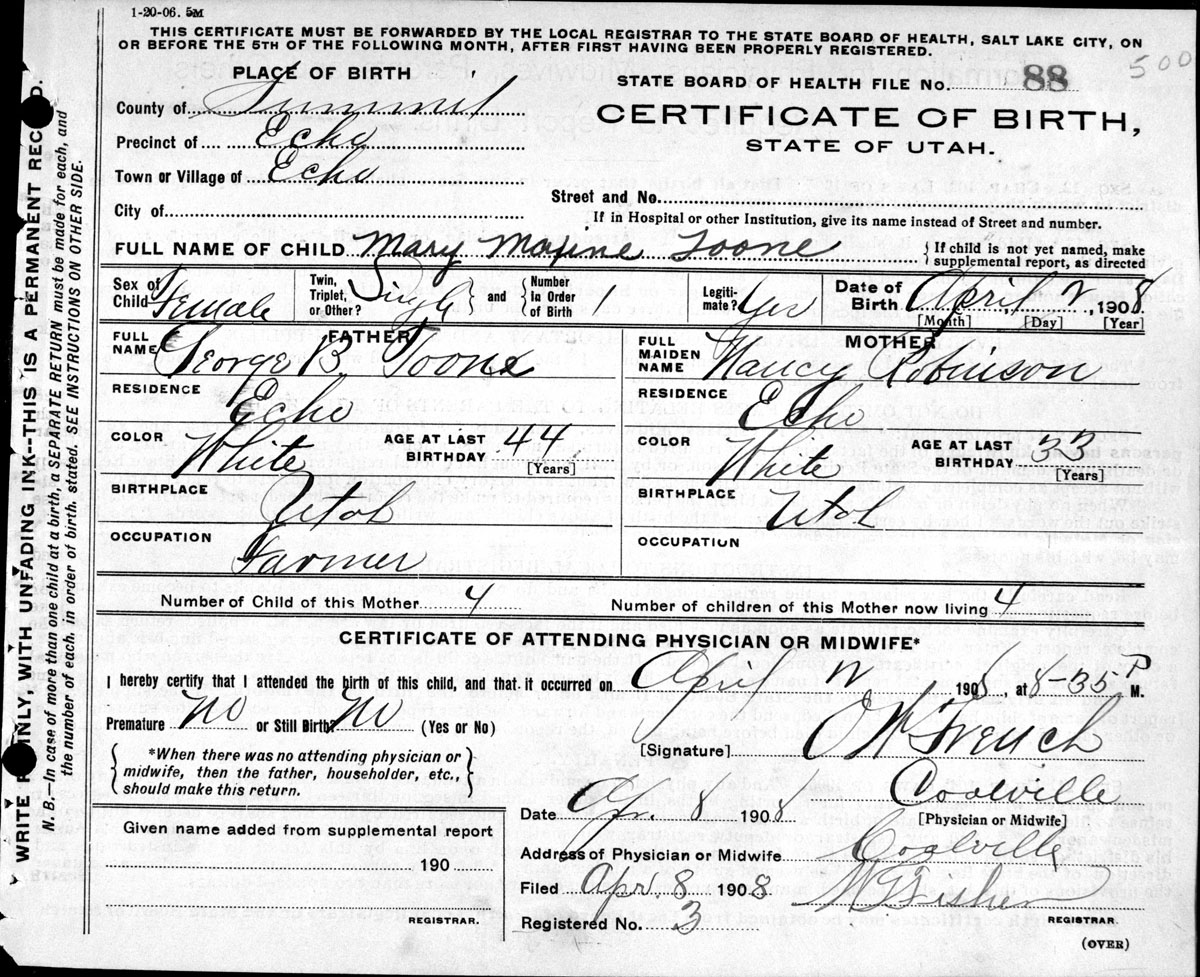 1-20-06. 5M
THIS CERTIFICATE MUST BE FORWARDED BY THE LOCAL REGISTRAR TO THE STATE BOARD OF HEALTH, SALT LAKE CITY, ON
OR BEFORE THE 5TH OF THE FOLLOWING MONTH, AFTER FIRST HAVING BEEN PROPERLY REGISTERED.
500
PLACE OF BIRTH
STATE BOARD OF HEALTH FILE No. 88
County of Summit
CERTIFICATE OF BIRTH,
Precinct of Echo
STATE OF UTAH.
Town or Village of Echo
Street and No.
City of
If in Hospital or other Institution, give its name instead of Street and number.
FULL NAME OF CHILD Mary Maxine Toone { If child is not yet named, make
supplemental report, as directed
Sex of Child Female Twin, Triplet, or Other? Single and Number in Order of Birth 1 Legiti-mate? Yes Date of Birth April, 2, 1908
[Month] [Day] [Year]
FATHER
FULL NAME George B. Toone
RESIDENCE Echo
COLOR White AGE AT LAST BIRTHDAY 44
[Years]
BIRTHPLACE Utah
OCCUPATION Farmer
MOTHER
FULL MAIDEN NAME Nancy Robinson
RESIDENCE Echo
COLOR White AGE AT LAST BIRTHDAY 33
[Years]
BIRTHPLACE Utah
OCCUPATION
Number of Child of this Mother 4 Number of children of this Mother now living 4
CERTIFICATE OF ATTENDING PHYSICIAN OR MIDWIFE*
I hereby certify that I attended the birth of this child, and that it occurred on April 2 1908, at 8-35 P M.
Premature No or Still Birth? No (Yes or No)
[Signature] French
*When there was no attending physician or
midwife, then the father, householder, etc.,
should make this return.
Coalville
Date Apr. 8 1908 [Physician or Midwife]
Given name added from supplemental report
190
REGISTRAR.
Address of Physician or Midwife Coalville
Filed Apr. 8 1908 Fisher
REGISTRAR.
Registered No. 3
(OVER)
WRITE ONLY, WITH UNFADING INK--THIS IS A PERMANENT
N. B.—In case of more than one child at a birth, a SEPARATE RETURN must be made for each, and
the number of each, in order of birth, stated. SEE INSTRUCTIONS ON OTHER SIDE.